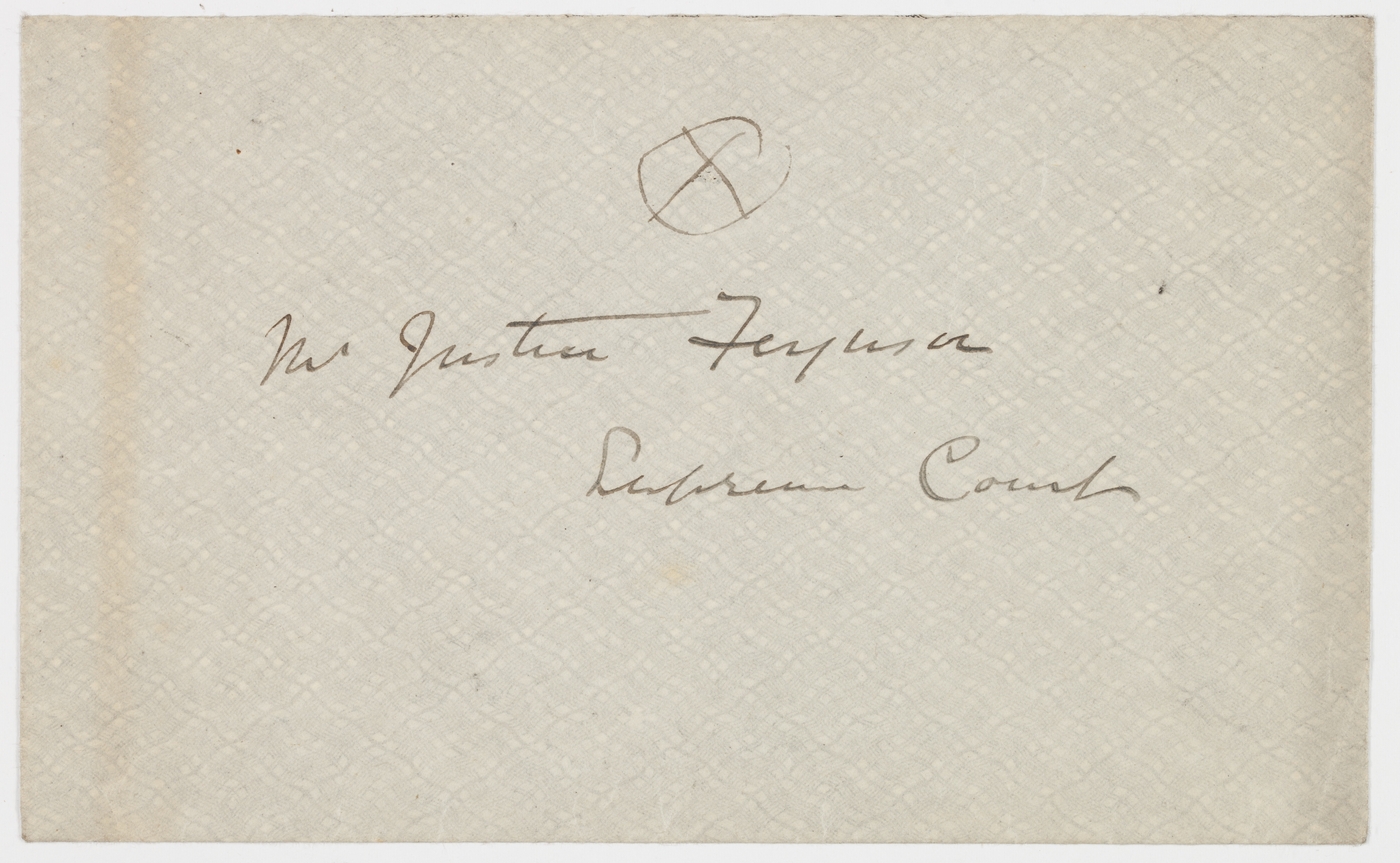 Mr Justice Ferguson
Supreme Court